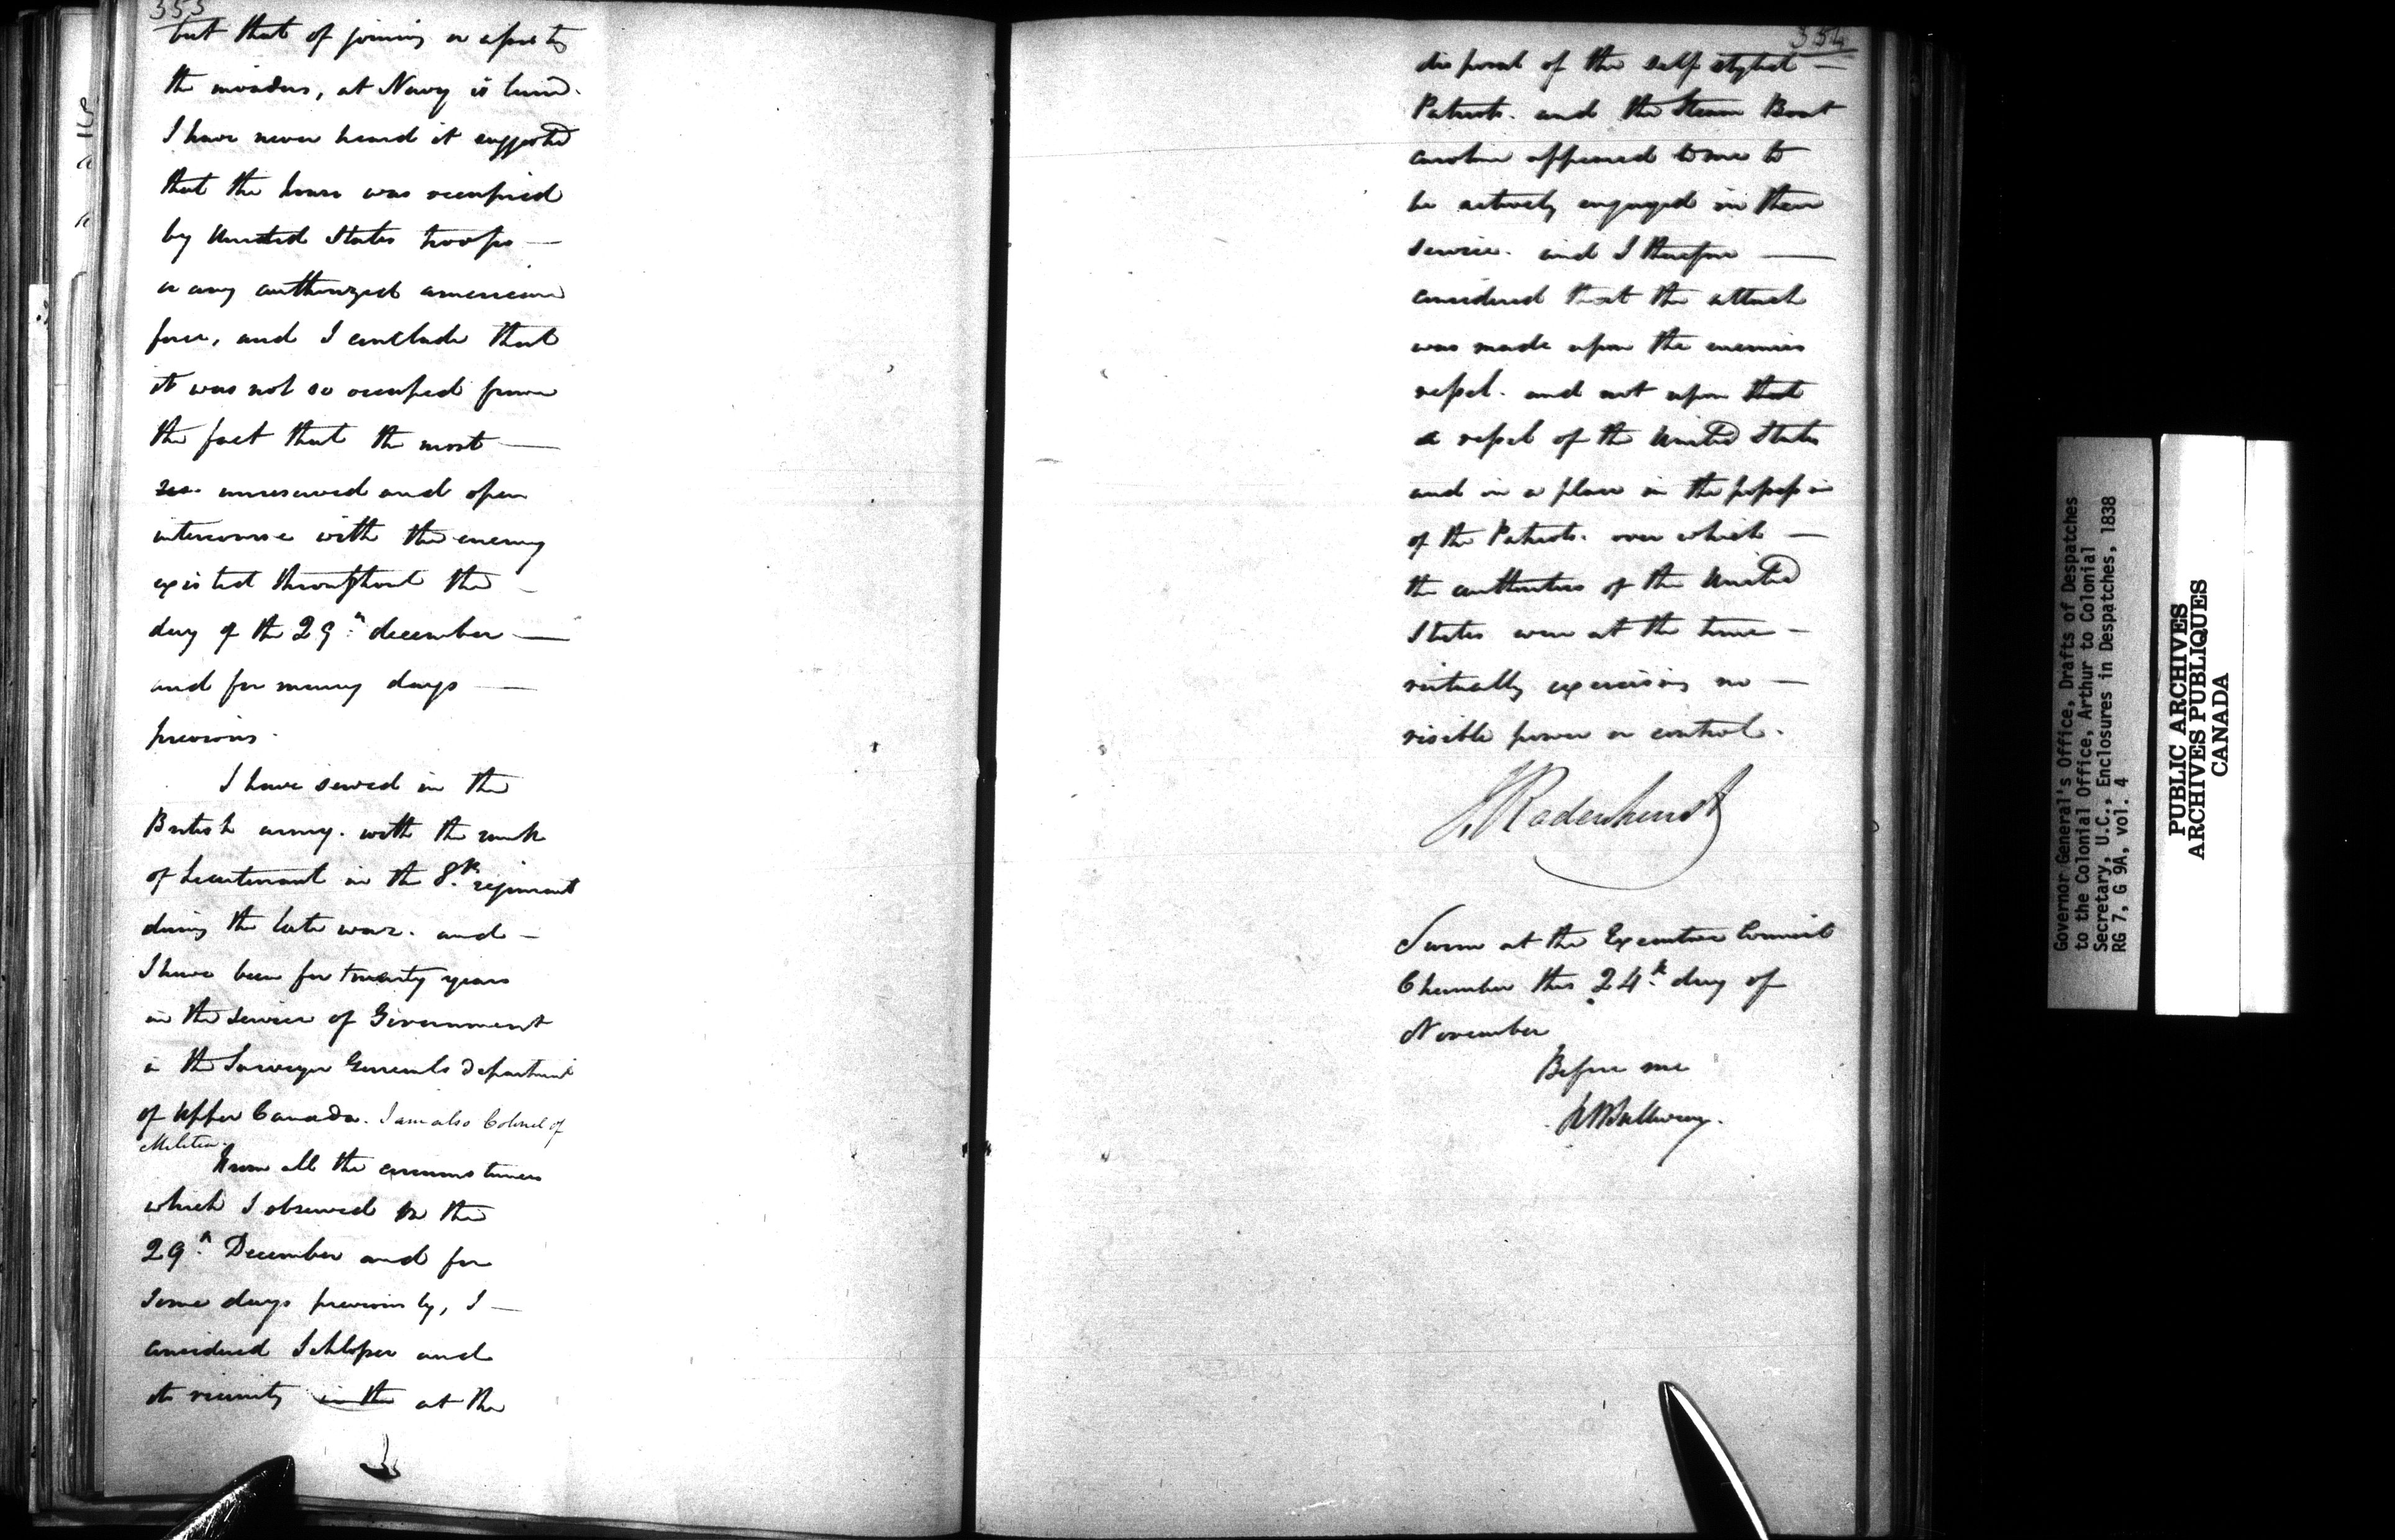 353
but that of joining or assisting
the invaders, at Navy island.
I have never heard it suggested
that the house was occupied
by United States troops —
or any authorized american
force, and I conclude that
it was not so occupied from
the fact that the most —
unreserved and open
intercourse with the enemy
existed throughout the —
day of the 29th december —
and for many days —
previous.
I have served in the
British army. with the rank
of Lieutenant in the 8th regiment
during the late war. and —
I have been for twenty years
in the service of Government
in the Surveyor Generals department
of Upper Canada. I am also Colonel of
Militia.
From all the circumstances
which I observed on the
29th December and for
some days previously, I —
considered Schlosser and
its vicinity in the at the
354
disposal of the self styled —
Patriots. and the Steam Boat
Caroline appeared to me to
be actively engaged in their
service. and I therefore —
considered that the attack
was made upon the enemies
vessel. and not upon that
a vessel of the United States
and in a place in the possession
of the Patriots. over which —
the authorities of the United
States were at the time —
virtually exercising no —
visible power or control.
J Radenhurst
Sworn at the Executive Council
Chamber this 24th day of
November
Before me
Governor General's Office, Drafts of Despatches
to the Colonial Office, Arthur to Colonial
Secretary, U.C., Enclosures in Despatches, 1838
RG 7, G 9A, vol. 4
PUBLIC ARCHIVES
ARCHIVES PUBLIQUES
CANADA